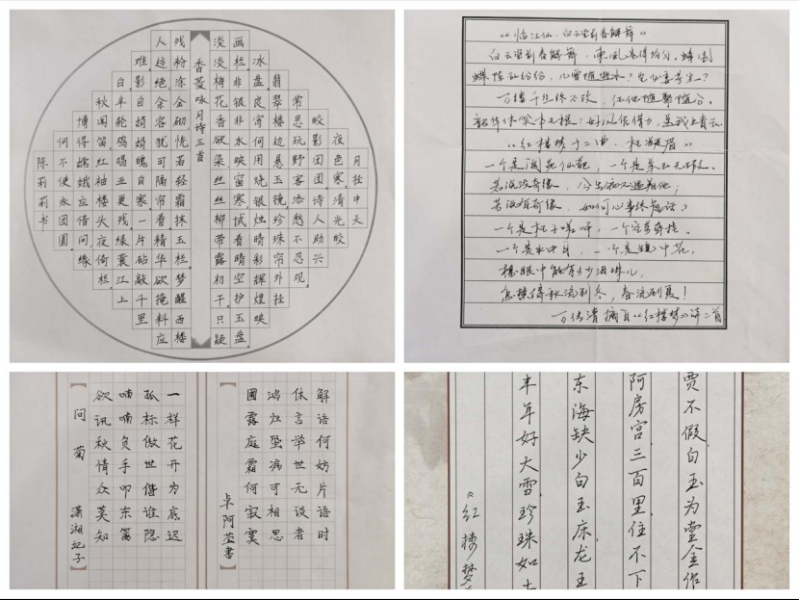 画栏非银非水映窗寒拭看晴空护玉盘
淡淡梅花香欲染丝丝柳带露初干只疑
残粉涂金砌恍若轻霜抹玉栏梦醒西楼
人迹绝余容犹可隔帘看精华欲掩料应
难影自娟娟魄自寒一片砧敲千里
白半轮鸡唱五更残绿蓑江上
秋闻笛红袖楼头夜倚栏
博得嫦娥应借问缘
何不使永团圆
陈莉莉书
香菱咏月诗三首
月挂中天
夜色寒清光皎
皎影团团诗人助兴
常思玩野客添愁不忍观
翡翠楼边悬玉镜珍珠帘外挂
冰盘良宵何用烧银烛晴彩辉煌映
《临江仙·白玉堂前春解舞》
白玉堂前春解舞，东风卷得均匀。蜂围
蝶阵乱纷纷，几曾随逝水？岂必委芳尘？
万缕千丝终不改，任他随聚随分。
韶华休笑本无根：好风凭借力，送我上青云。
《红楼梦十二曲·枉凝眉》
一个是阆苑仙葩，一个是美玉无瑕。
若说没奇缘，今生偏又遇着他；
若说有奇缘，如何心事终虚话？
一个枉自嗟呀，一个空劳牵挂。
一个是水中月，一个是镜中花。
想眼中能有多少泪珠儿，
怎禁得秋流到冬，春流到夏！
万传清 摘自《红楼梦》诗二首
问菊 潇湘妃子
欲讯秋情众莫知
喃喃负手叩东篱
孤标傲世偕谁隐
一样花开为底迟
圃露庭霜何寂寞
鸿归蛩病可相思
休言举世无谈者
解语何妨片语时
卓阿莹书
贾不假白玉为堂金作
阿房宫三百里住不下
东海缺少白玉床龙王
丰年好大雪珍珠如土
《红楼梦